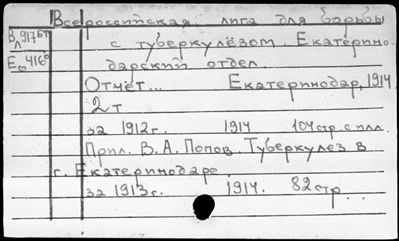 Всероссийская лига для борьбы
с туберкулёзом. Екатерино
дарский отдел
Отчёт... Екатеринодар, 1914
2 т
за 1912 г. 1914 104 стр. с илл.
Прил. В. А. Попов. Туберкулез в
г. Екатеринодаре.
за 1913 г. 1914. 82 стр.